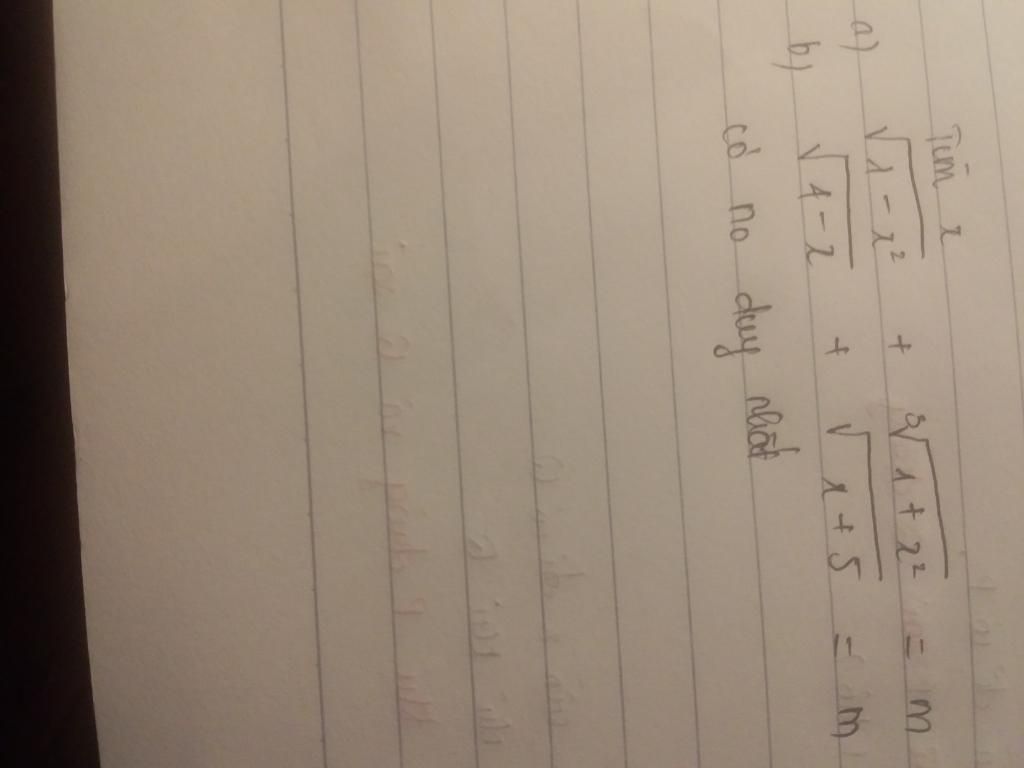 Tìm x
a) √1-x² + ³√1+x² = m
b) √1-x + √x+5 = m
có no duy nhất